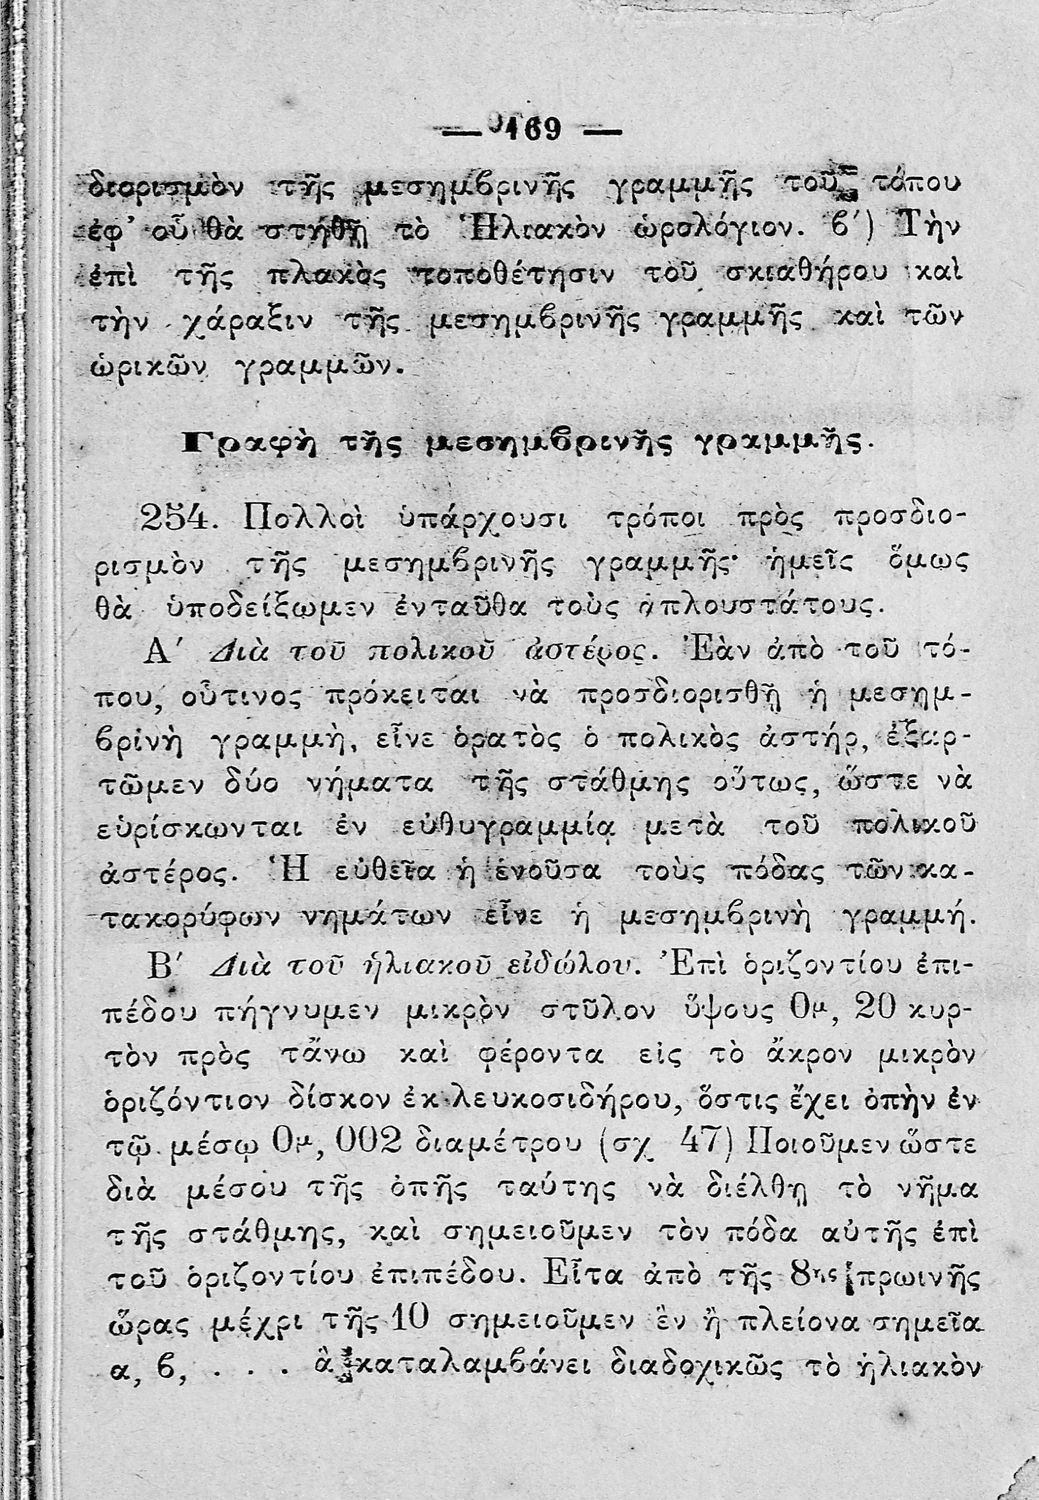 — 169 —
διορισμὸν τῆς μεσημβρινῆς γραμμῆς τοῦ τόπου
ἐφ’ οὗ θὰ στήθῃ τὸ Ἡλιακὸν ὡρολόγιον. ϐ′) Τὴν
ἐπὶ τῆς πλακὸς τοποθέτησιν τοῦ σκιαθήρου καὶ
τὴν χάραξιν τῆς μεσημϐρινῆς γραμμῆς καὶ τῶν
ὡρικῶν γραμμῶν.
Γραφὴ τῆς μεσημϐρινῆς γραμμῆς.
254. Πολλοὶ ὑπάρχουσι τρόποι πρὸς προσδιο-
ρισμὸν τῆς μεσημϐρινῆς γραμμῆς· ἡμεῖς ὅμως
θὰ ὑποδείξωμεν ἐνταῦθα τοὺς ἁπλουστάτους.
Α′ Διὰ τοῦ πολικοῦ ἀστέρος. Ἐὰν ἀπὸ τοῦ τό-
που, οὗτινος πρόκειται νὰ προσδιορισθῇ ἡ μεσημ-
ϐρινὴ γραμμὴ, εἶνε ὁρατὸς ὁ πολικὸς ἀστήρ, ἐξαρ-
τῶμεν δύο νήματα τῆς στάθμης οὕτως, ὥστε νὰ
εὑρίσκωνται ἐν εὐθυγραμμίᾳ μετὰ τοῦ πολικοῦ
ἀστέρος. Ἡ εὐθεῖα ἡ ἑνοῦσα τοὺς πόδας τῶν κα-
τακορύφων νημάτων εἶνε ἡ μεσημϐρινὴ γραμμή.
Β′ Διὰ τοῦ ἡλιακοῦ εἰδώλου. Ἐπὶ ὁριζοντίου ἐπι-
πέδου πήγνυμεν μικρὸν στῦλον ὕψους 0μ, 20 κυρ-
τὸν πρὸς τἄνω καὶ φέροντα εἰς τὸ ἄκρον μικρὸν
ὁριζόντιον δίσκον ἐκ λευκοσιδήρου, ὅστις ἔχει ὀπὴν ἐν
τῷ μέσῳ 0μ, 002 διαμέτρου (σχ 47) Ποιοῦμεν ὥστε
διὰ μέσου τῆς ὀπῆς ταύτης νὰ διέλθῃ τὸ νῆμα
τῆς στάθμης, καὶ σημειοῦμεν τὸν πόδα αὐτῆς ἐπὶ
τοῦ ὁριζοντίου ἐπιπέδου. Εἶτα ἀπὸ τῆς 8ης πρωινῆς
ὥρας μέχρι τῆς 10 σημειοῦμεν ἓν ἢ πλείονα σημεῖα
α, ϐ, . . . ἃ καταλαμϐάνει διαδοχικῶς τὸ ἡλιακὸν